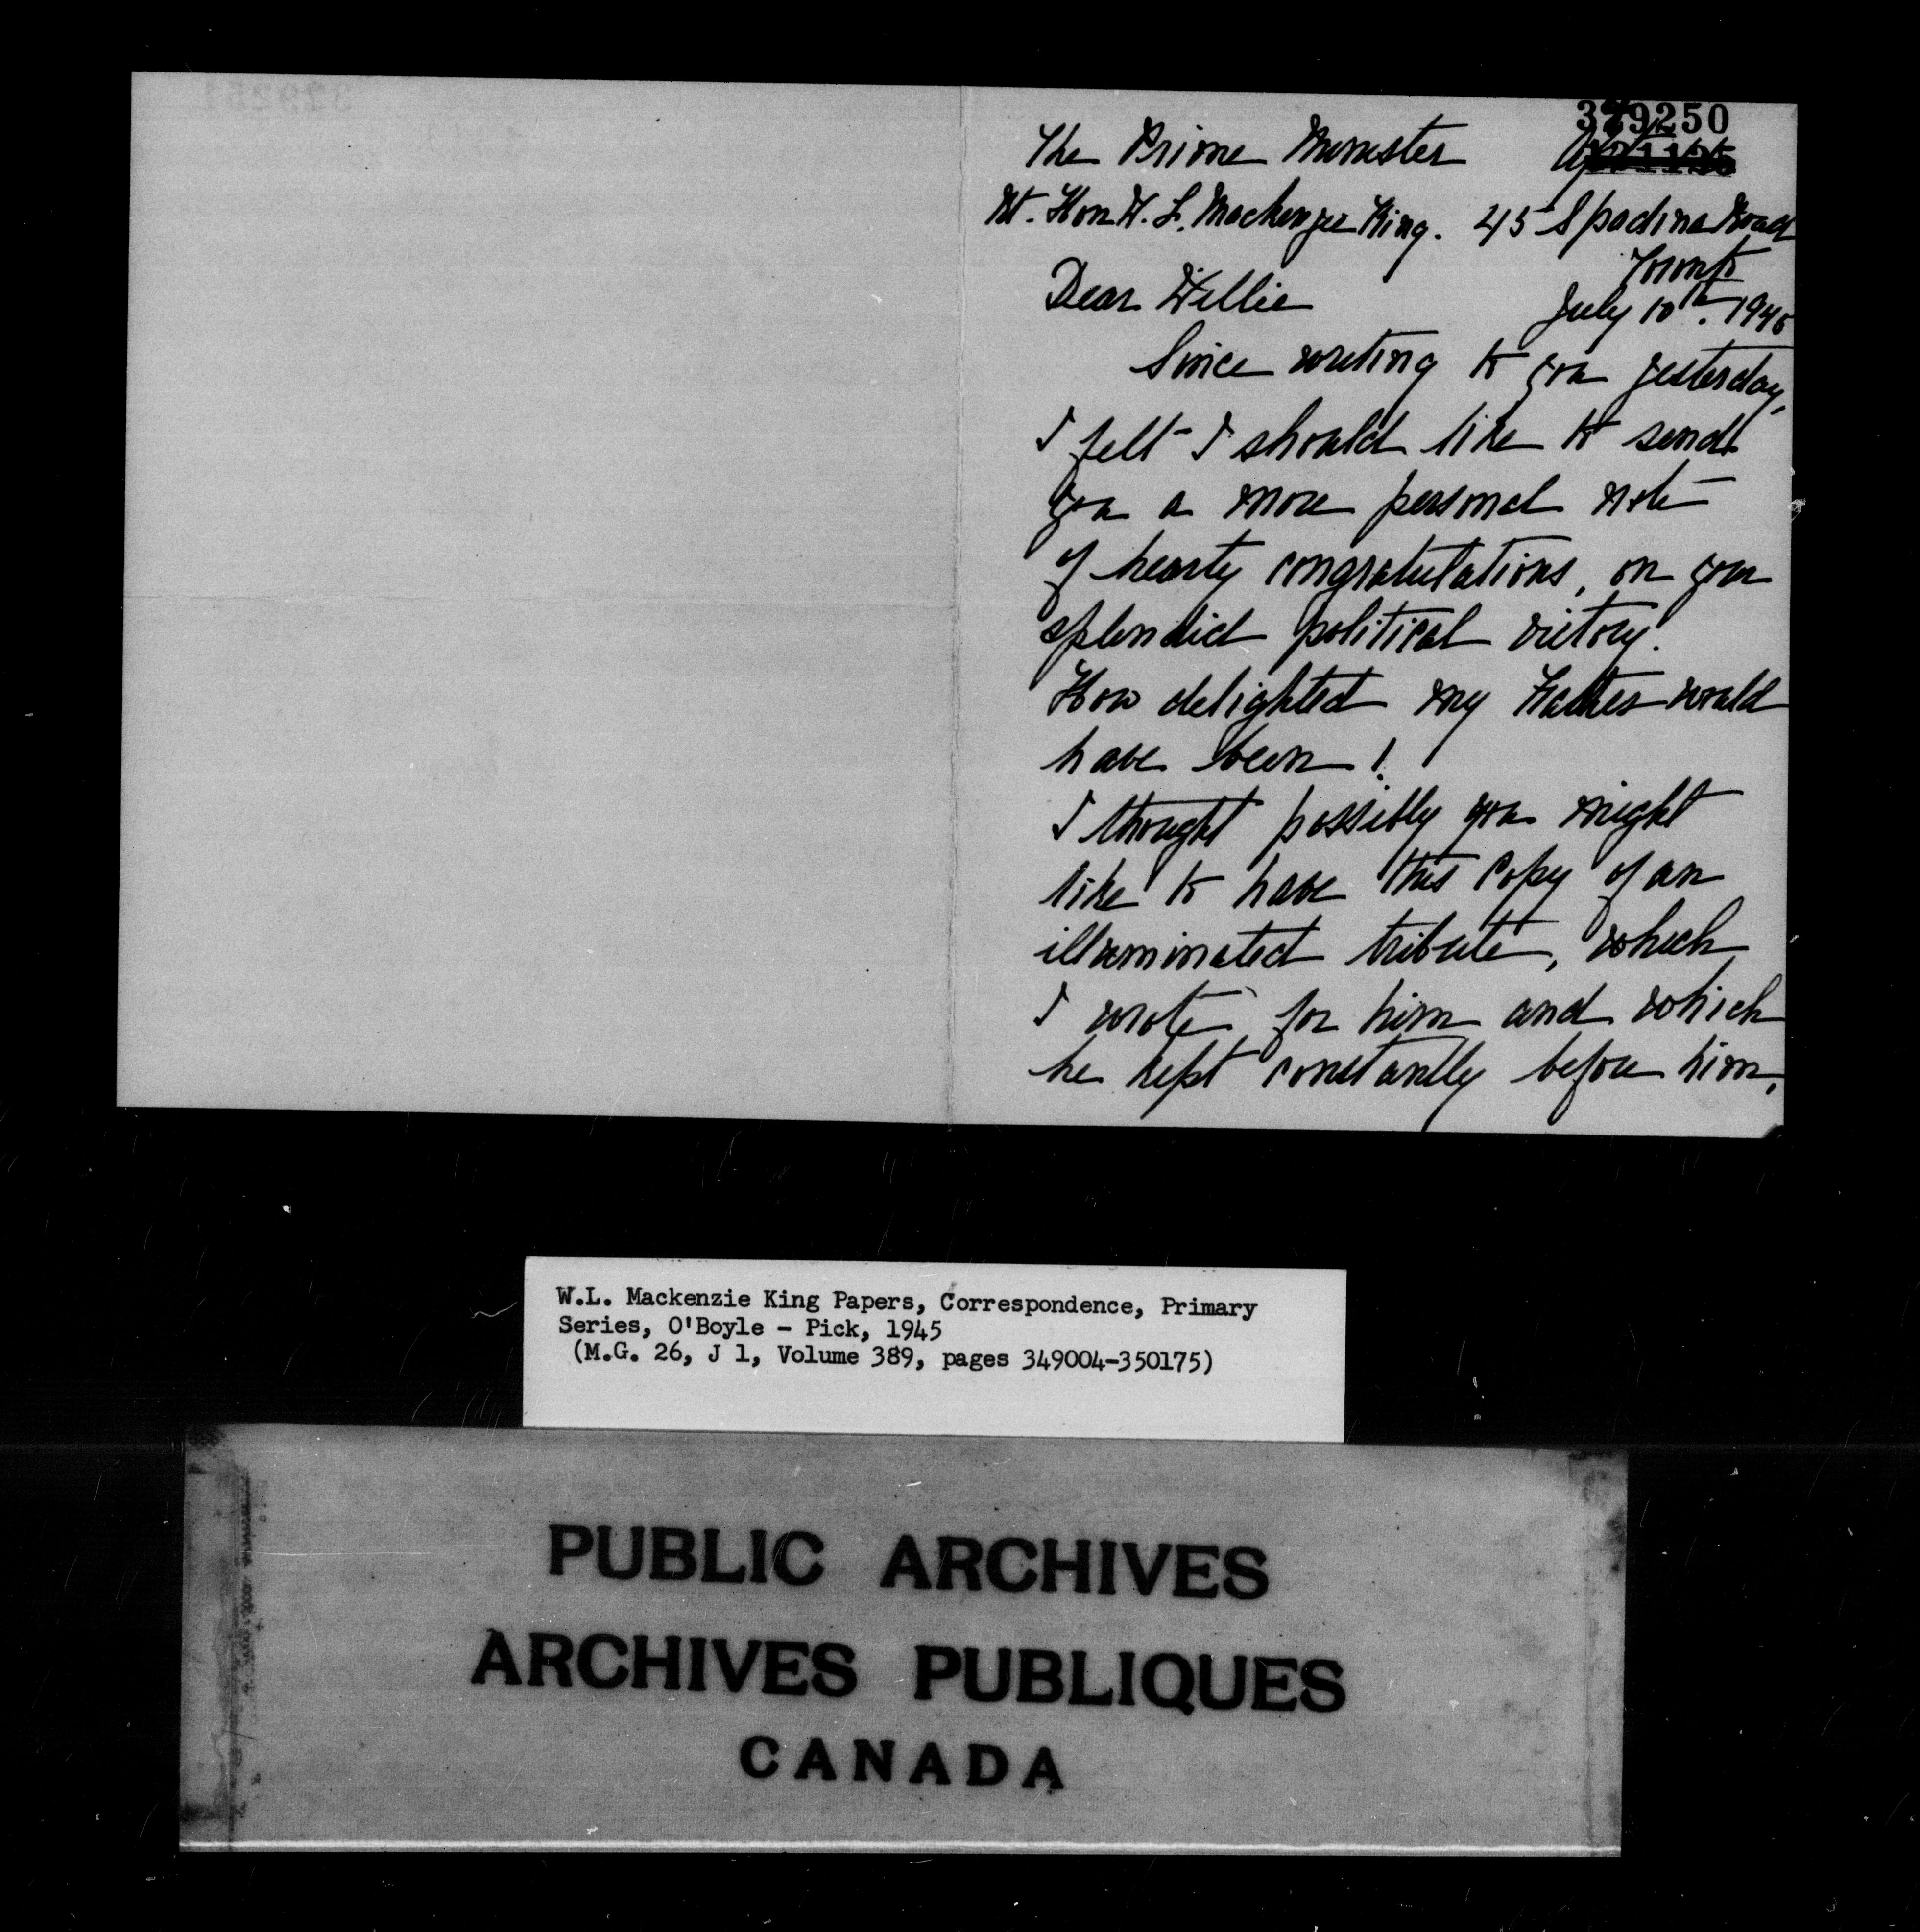 349250
The Prime Minister Apt. 44
Rt. Hon W. L. Mackenzie King. 45 Spadina Road
Toronto
Dear Willie July 10th. 1945
Since writing to you yesterday,
I felt I should like to send
you a more personal note
of hearty congratulations, on your
splendid political victory.
How delighted my Father would
have been!
I thought possibly you might
like to have this copy of an
illuminated tribute, which
I wrote for him and which
he kept constantly before him,
W.L. Mackenzie King Papers, Correspondence, Primary
Series, O'Boyle - Pick, 1945
(M.G. 26, J 1, Volume 389, pages 349004-350175)
PUBLIC ARCHIVES
ARCHIVES PUBLIQUES
CANADA